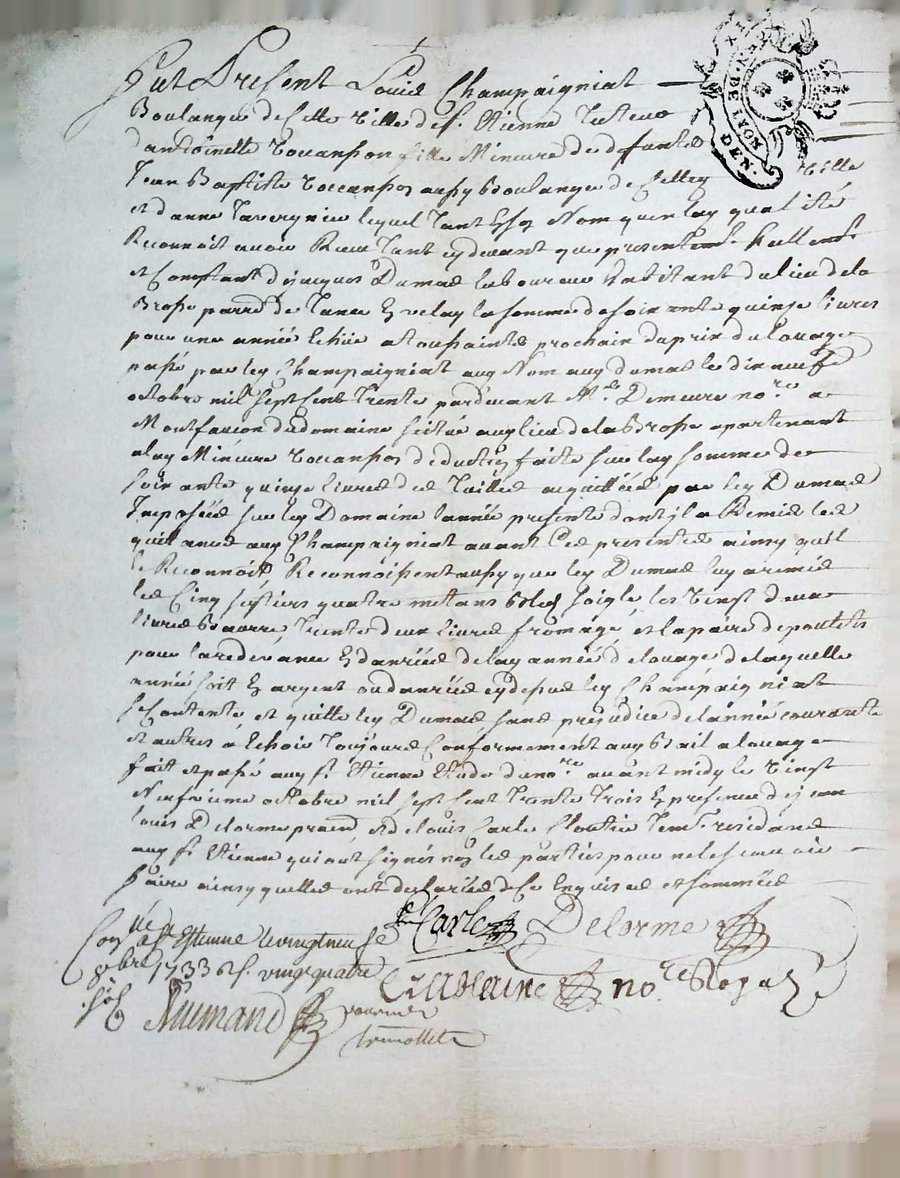 Fut Present Louis Champaigniat
GN. DE LYON
DEN.
Boulanger de cette ville de St. Etienne tuteur
d'antoinette Touanpon fille Mineure de defunts
Jean Baptiste Touanpon aussy Boulanger de cettte ville
et d'anne Tavernier lequel tant Esd. Nom qu'en lad. qualité
Reconnoit avoir Receu tant cydevant que presentemt. Reellemt.
et Comptant de jacques Dumas laboureur habitant du lieu de la
Brosse parre. de Tance En velay la somme de soixante quinze livres
pour une année Echue a toussaints prochain du prix du louage
passé par led. Champaigniat aud. Nom aud. dumas le dix neufe
octobre mil sept cent trente pardevant Me. Demeure nore. a
Montfaucon du domaine scitué aud. lieu de la Brosse apartenant
a lad. Mineure Touanpon deduction faite sur lad. somme de
soixante quinze livres des tailles acquittées par led. Dumas
Imposées sur led. Domaine l'année presente dont jl a Remis les
quittances aud. Champaigniat avant Ces presentes ainsy qu'il
le Reconnoit Reconnoissent aussy que led. Dumas luy a remis
les Cinq sestiers quatre metans bled soigle les vingt deux
livres Beurre, trente deux livres fromage, et la paire de poulets
pour la redevance En danrées de lad. année de louage de laquelle
année soit En argent ou danrées cydessus led. Champaigniat
se Contente, et quitte led. Dumas sans prejudice de l'année courante
et autres a Echoir toujours Conformement aud. Bail a louage
fait et passé aud. St. Etienne Etude du nore. avant midy le vingt
Neufvieme octobre mil sept cent trente trois En presence de jean
louis Delorme pratn. et de louis Carle Cloutier temt. residans
aud. St. Etienne qui ont signés non les parties pour ne le scavoir
faire ainsy quelles ont declarées de ce Enquises et sommées
Carle Delorme
Conlle. a St. Estienne le vingt neufe
8bre 1733 R s. vingt quatre
nore. Royal